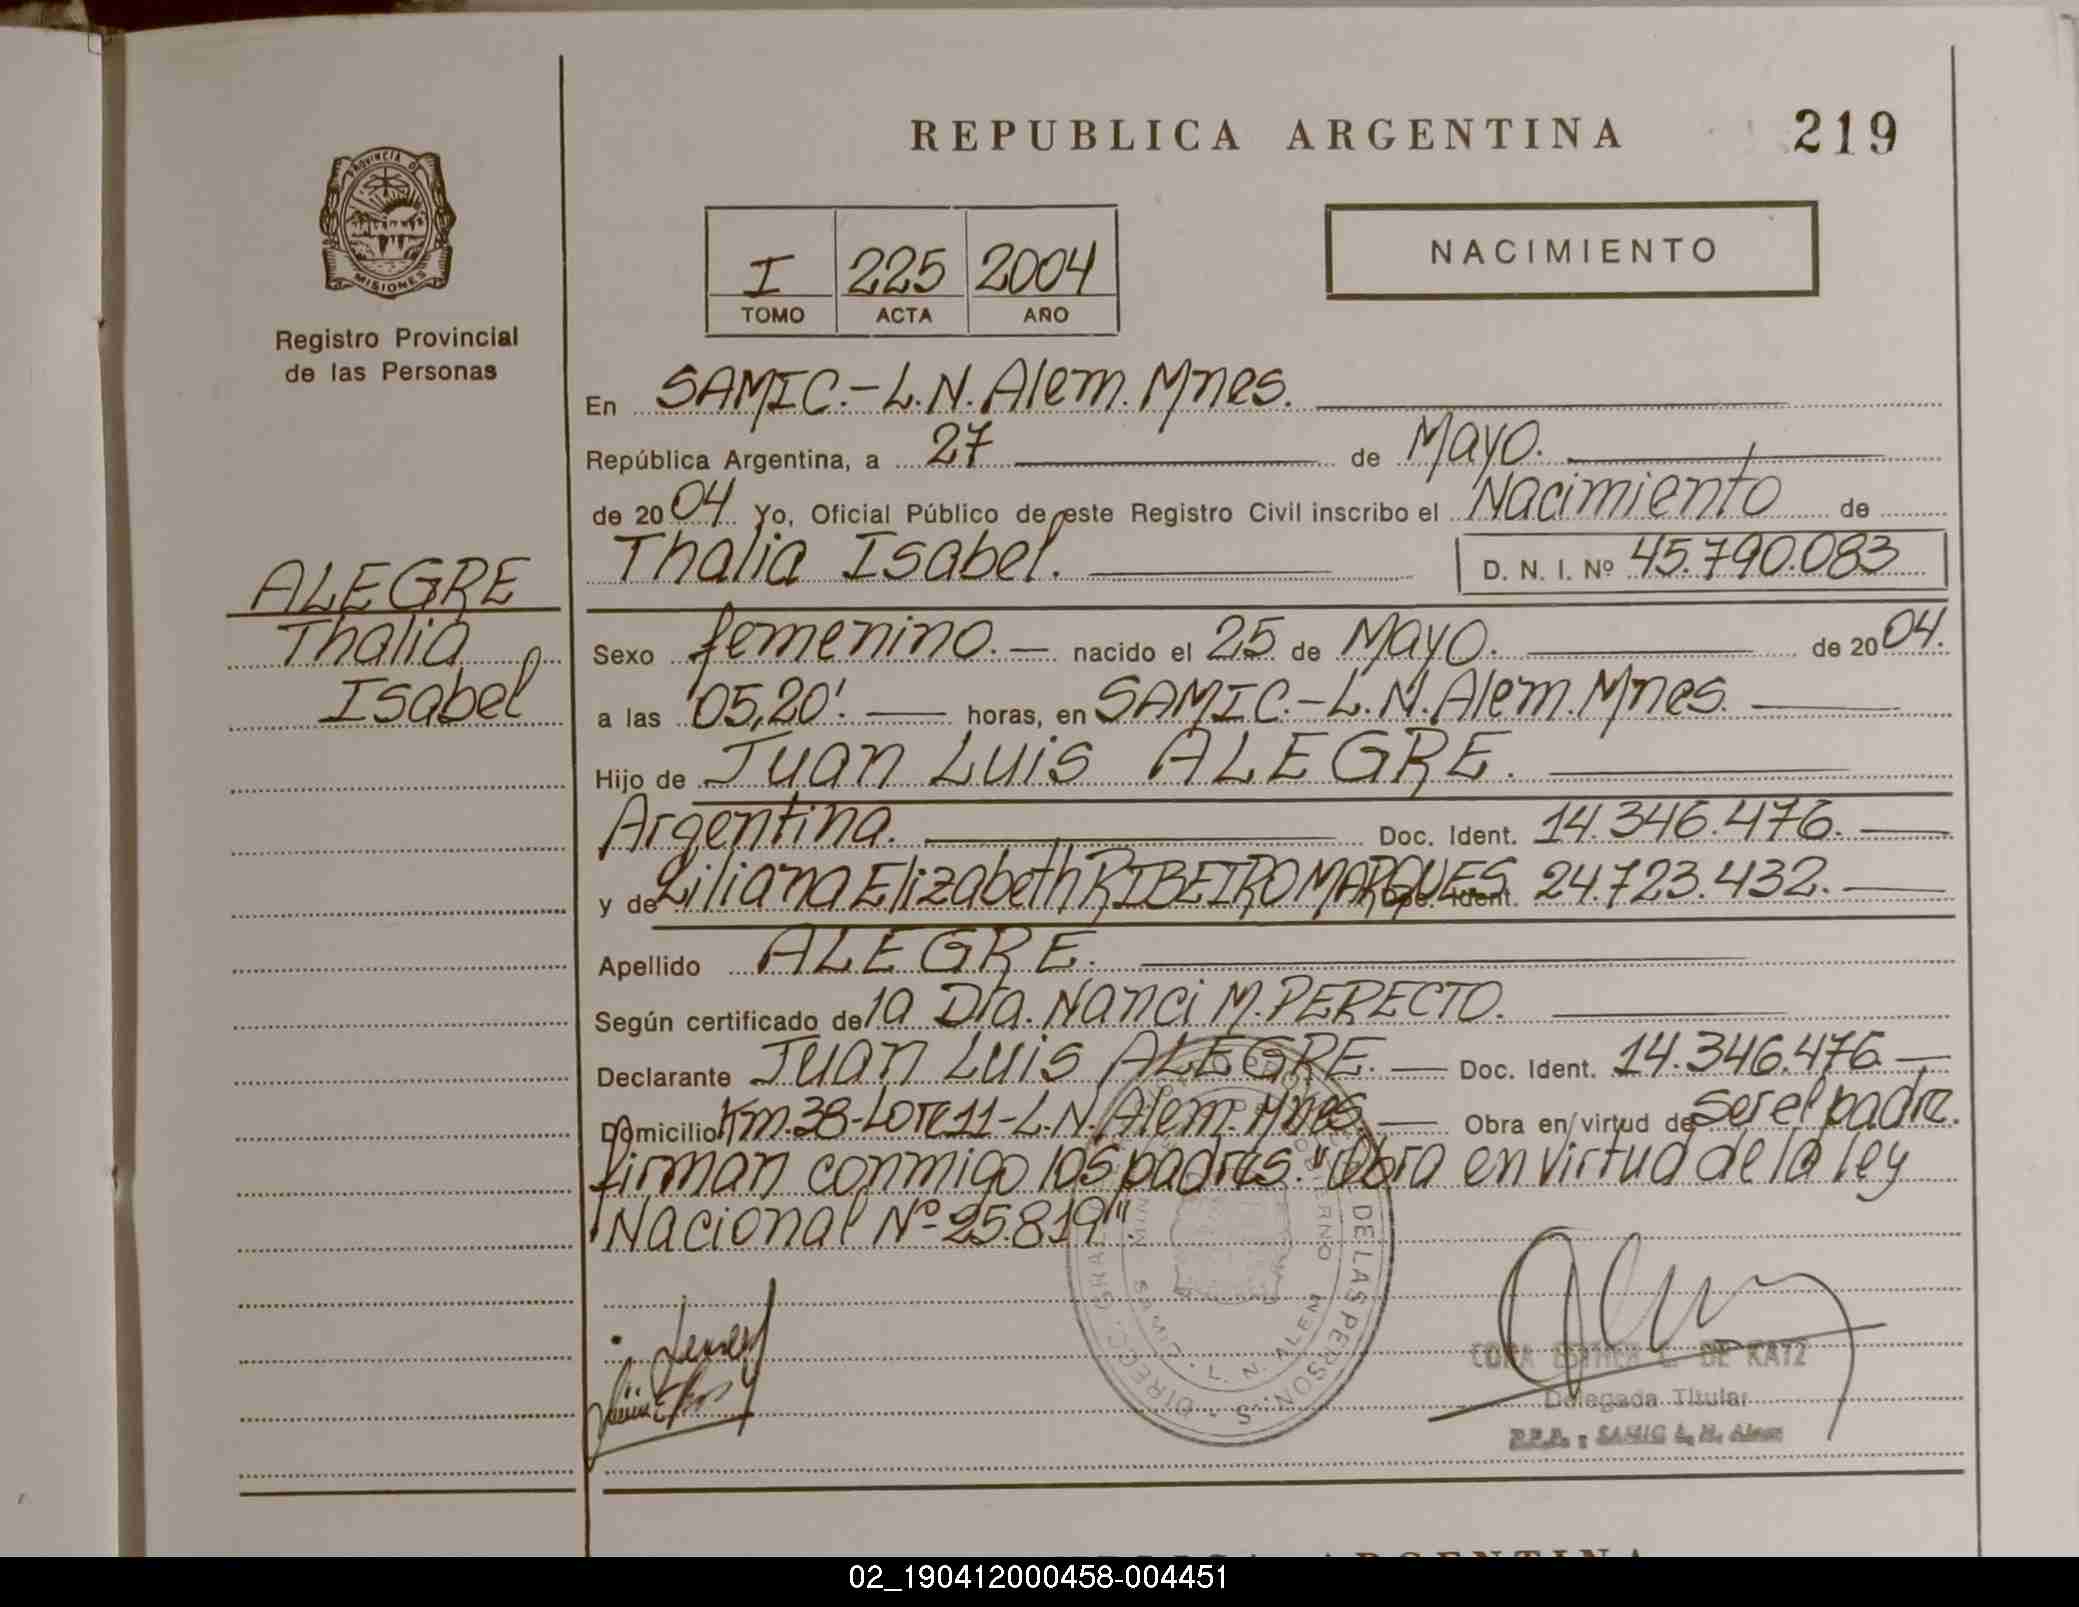 REPUBLICA ARGENTINA 219
PROVINCIA DE
MISIONES
Registro Provincial
de las Personas
NACIMIENTO
I 225 2004
TOMO ACTA AÑO
En SAMIC.-L.N.Alem.Mnes.
República Argentina, a 27 de Mayo.
de 2004 Yo, Oficial Público de este Registro Civil inscribo el Nacimiento de
Thalia Isabel. D. N. I. Nº 45.790.083
ALEGRE
Thalia
Isabel
Sexo femenino.- nacido el 25 de Mayo. de 2004.
a las 05,20'. horas, en SAMIC.-L.N.Alem.Mnes.
Hijo de Juan Luis ALEGRE.
Argentina. Doc. Ident. 14.346.476.
y de Liliana Elizabeth RIBEIRO MARQUES Doc. Ident. 24.723.432.
Apellido ALEGRE.
Según certificado de la Dra. Nanci M. PERECTO.
Declarante Juan Luis ALEGRE. Doc. Ident. 14.346.476
Domicilio Km.38-Lote 11-L.N.Alem.Mnes. Obra en virtud de ser el padre.
firman conmigo los padres. "Obra en virtud de la ley
Nacional Nº 25.819".
DE LAS PERSON.S
SAMIC - L. N. ALEM
DE KATZ
Delegada Titular
SAMIC L. N. Alem
02_190412000458-004451